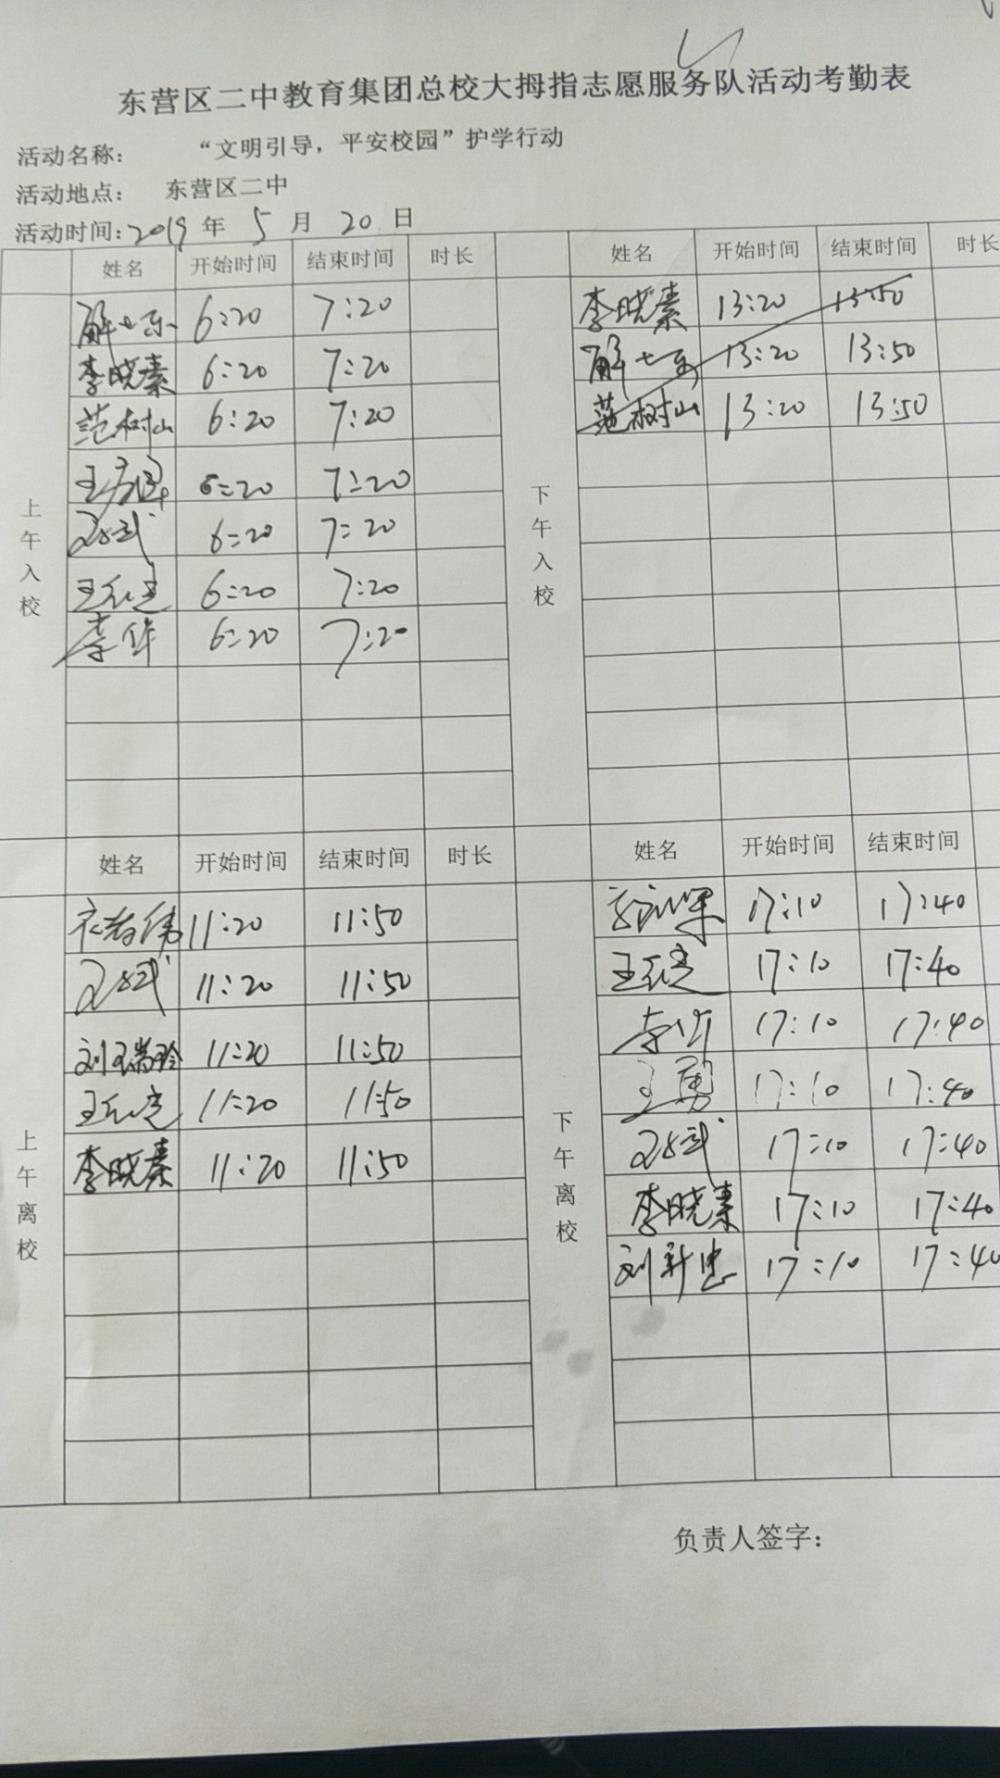 东营区二中教育集团总校大拇指志愿服务队活动考勤表
活动名称： “文明引导，平安校园”护学行动
活动地点： 东营区二中
活动时间：2019 年 5 月 20 日
姓名 开始时间 结束时间 时长 姓名 开始时间 结束时间 时长
上午入校
6:20 7:20
李晓素 6:20 7:20
范树山 6:20 7:20
6:20 7:20
6:20 7:20
6:20 7:20
李华 6:20 7:20
下午入校
李晓素 13:20 13:50
13:20 13:50
范树山 13:20 13:50
姓名 开始时间 结束时间 时长 姓名 开始时间 结束时间
上午离校
11:20 11:50
11:20 11:50
刘瑞玲 11:20 11:50
11:20 11:50
李晓素 11:20 11:50
下午离校
17:10 17:40
17:10 17:40
李华 17:10 17:40
王勇 17:10 17:40
17:10 17:40
李晓素 17:10 17:40
刘新忠 17:10 17:40
负责人签字：